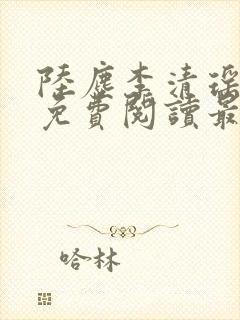 陸塵李清瑤
免費閱讀最
哈林